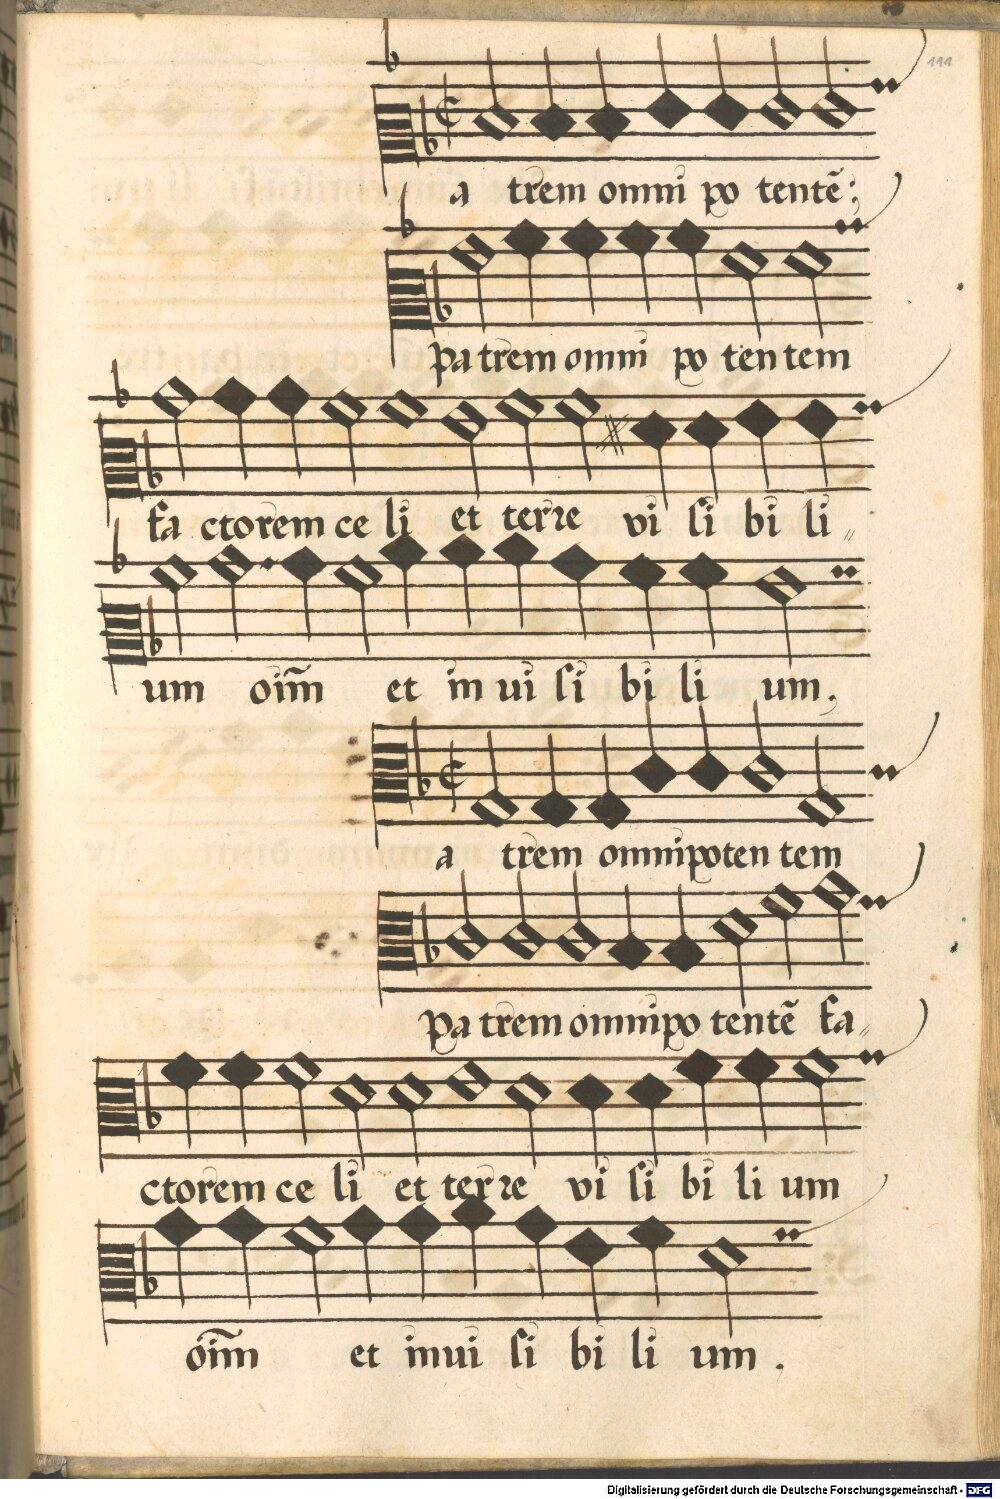 111
a trem omni po tentē;
Pa trem omni po ten tem
fa ctorem ce li et terre vi si bi li〃
um oim̄ et in vi si bi li um.
a trem omnipoten tem
Pa trem omnipo tentē fa〃
ctorem ce li et terre vi si bi li um
oim̄ et invi si bi li um.
Digitalisierung gefördert durch die Deutsche Forschungsgemeinschaft - DFG